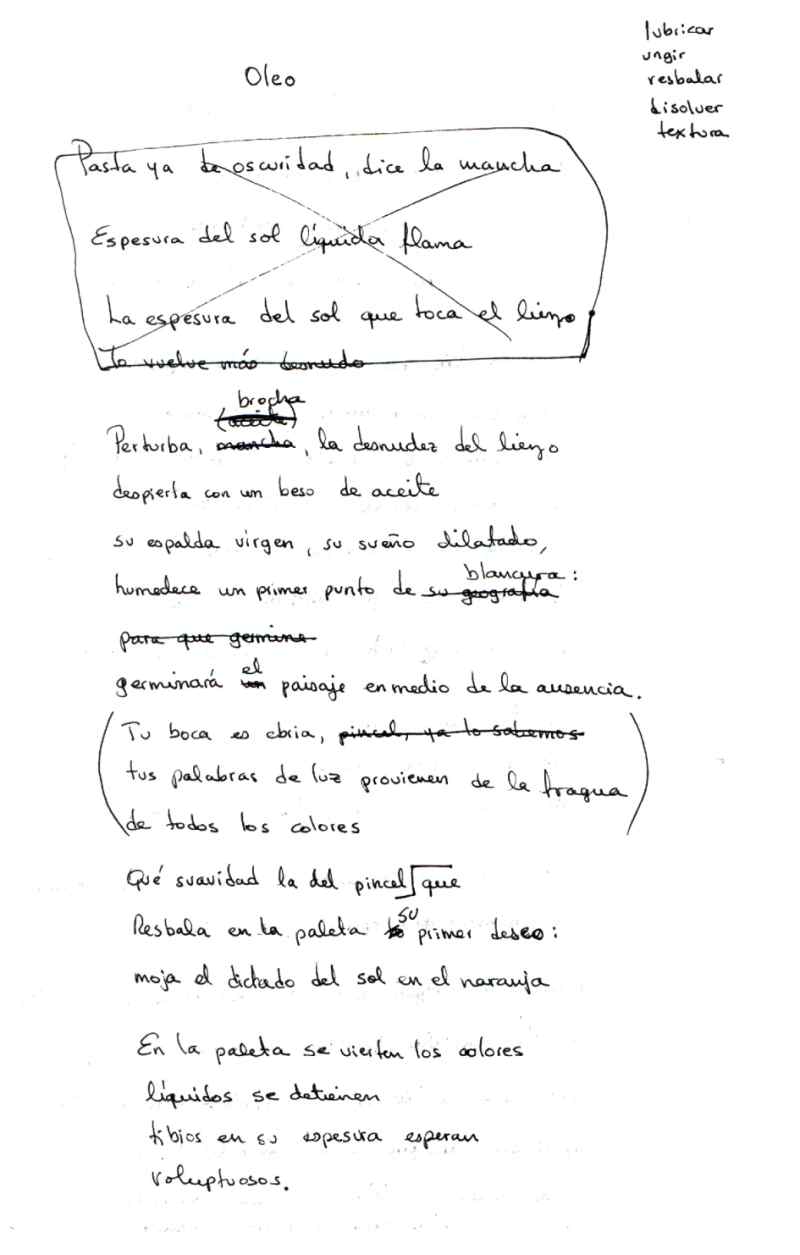 lubricar
ungir
resbalar
disolver
textura
Oleo
Pasta ya de oscuridad, dice la mancha
Espesura del sol líquida flama
La espesura del sol que toca el lienzo
lo vuelve más desnudo
brocha
(aceite)
Perturba, mancha, la desnudez del lienzo
despierta con un beso de aceite
su espalda virgen, su sueño dilatado,
blancura:
humedece un primer punto de su geografía
para que germine
el
germinará un paisaje en medio de la ausencia.
(Tu boca es ebria, pincel, ya lo sabemos
tus palabras de luz provienen de la fragua
de todos los colores)
Qué suavidad la del pincel que
su
Resbala en la paleta primer deseo:
moja el dictado del sol en el naranja
En la paleta se vierten los colores
líquidos se detienen
tibios en su espesura esperan
voluptuosos.